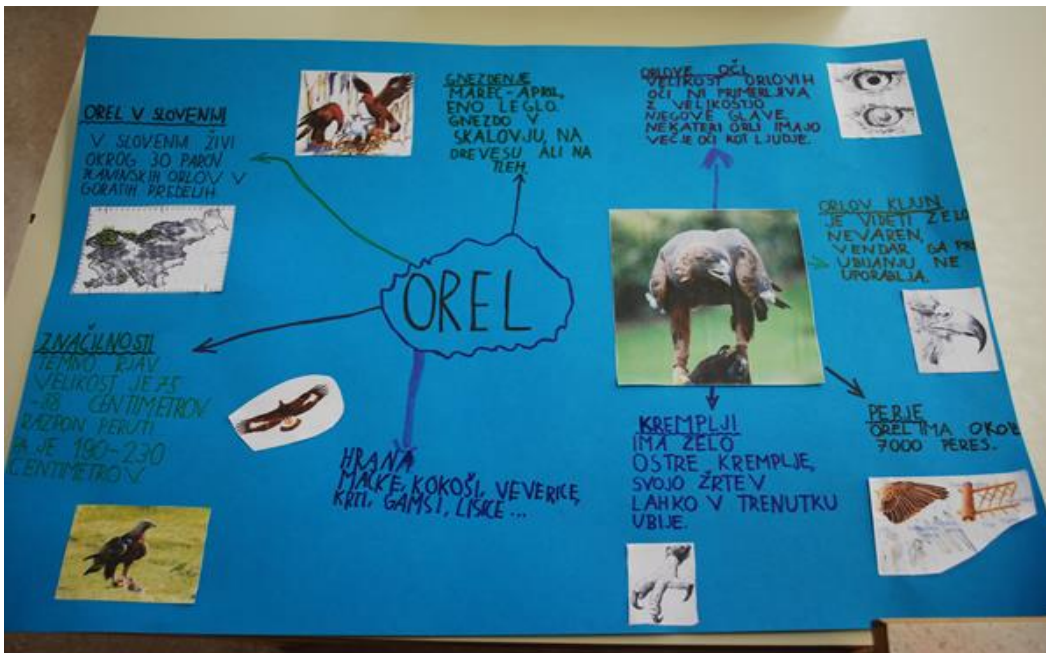 OREL V SLOVENIJI
V SLOVENIJI ŽIVI
OKROG 30 PAROV
PLANINSKIH ORLOV V
GORATIH PREDELIH
GNEZDENJE
MAREC-APRIL,
ENO LEGLO.
GNEZDO V
SKALOVJU, NA
DREVESU ALI NA
TLEH.
ORLOVE OČI
VELIKOST ORLOVIH
OČI NI PRIMERLJIVA
Z VELIKOSTJO
NJEGOVE GLAVE.
NEKATERI ORLI IMAJO
VEČJE OČI KOT LJUDJE.
ORLOV KLJUN
JE VIDETI ZELO
NEVAREN,
VENDAR GA PRI
UBIJANJU NE
UPORABLJA.
OREL
ZNAČILNOSTI
TEMNO RJAV
VELIKOST JE 75
CENTIMETROV
RAZPON PERUTI
PA JE 190-230
CENTIMETROV.
HRANA
MAČKE, KOKOŠI, VEVERICE,
KRTI, GAMSI, LISICE...
KREMPLJI
IMA ZELO
OSTRE KREMPLJE,
SVOJO ŽRTEV
LAHKO V TRENUTKU
UBIJE.
PERJE
OREL IMA OKOLI
7000 PERES.